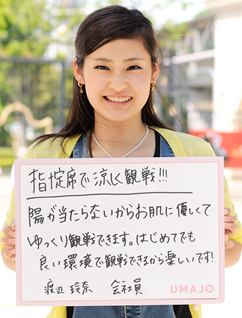 指定席で涼しく観戦!!!
陽が当たらないからお肌に優しくて
ゆっくり観戦できます。はじめてでも
良い環境で観戦できるから楽しいです!
渡辺 玲奈 会社員
UMAJO